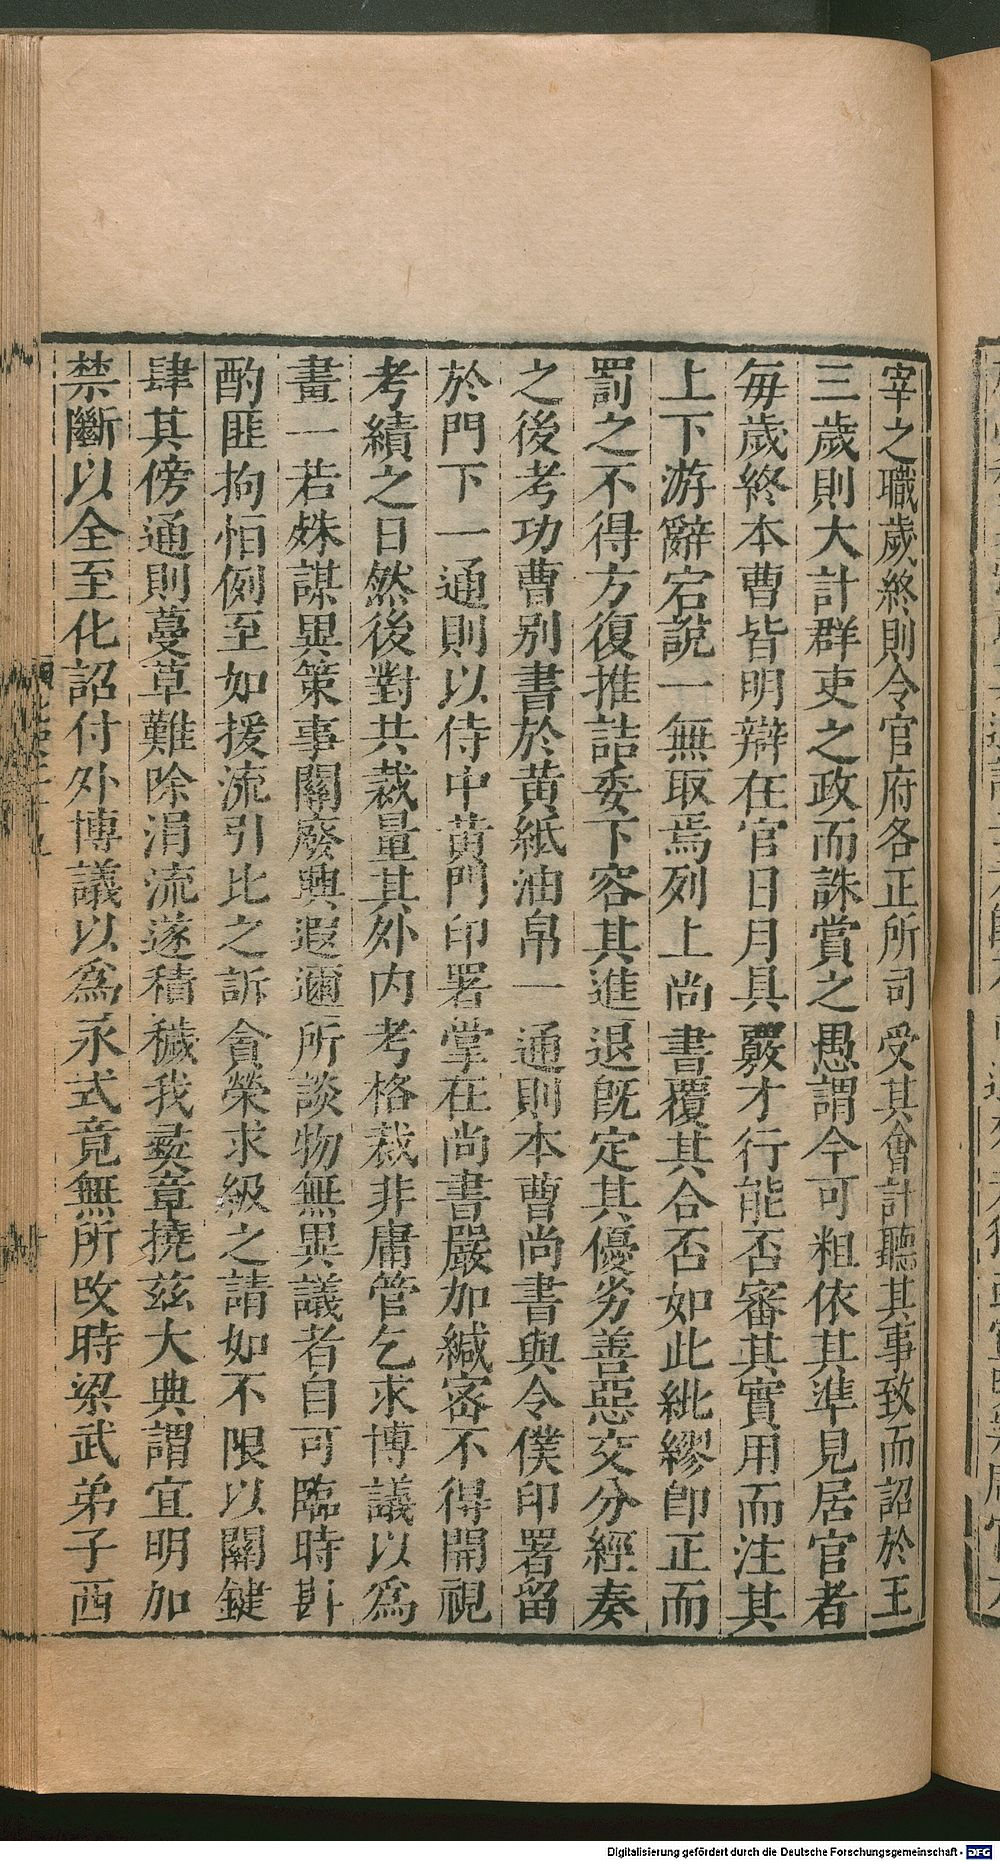 宰之職歲終則令官府各正所司受其會計聽其事致而詔於王
三歲則大計群吏之政而誅賞之愚謂今可粗依其準見居官者
每歲終本曹皆明辯在官日月具覈才行能否審其實用而注其
上下游辭宕說一無取焉列上尚書覆其合否如此紕繆卽正而
罰之不得方復推詰委下容其進退旣定其優劣善惡交分經奏
之後考功曹別書於黄紙油帛一通則本曹尚書與令僕印署留
於門下一通則以侍中黄門印署掌在尚書嚴加緘密不得開視
考績之日然後對共裁量其外内考格裁非庸管乞求博議以爲
畫一若殊謀異策事關廢興遐邇所談物無異議者自可臨時斟
酌匪拘恒例至如援流引比之訴貪榮求級之請如不限以關鍵
肆其傍通則蔓草難除涓流遂積穢我彝章撓兹大典謂宜明加
禁斷以全至化詔付外博議以爲永式竟無所改時梁武弟子西
Digitalisierung gefördert durch die Deutsche Forschungsgemeinschaft - DFG